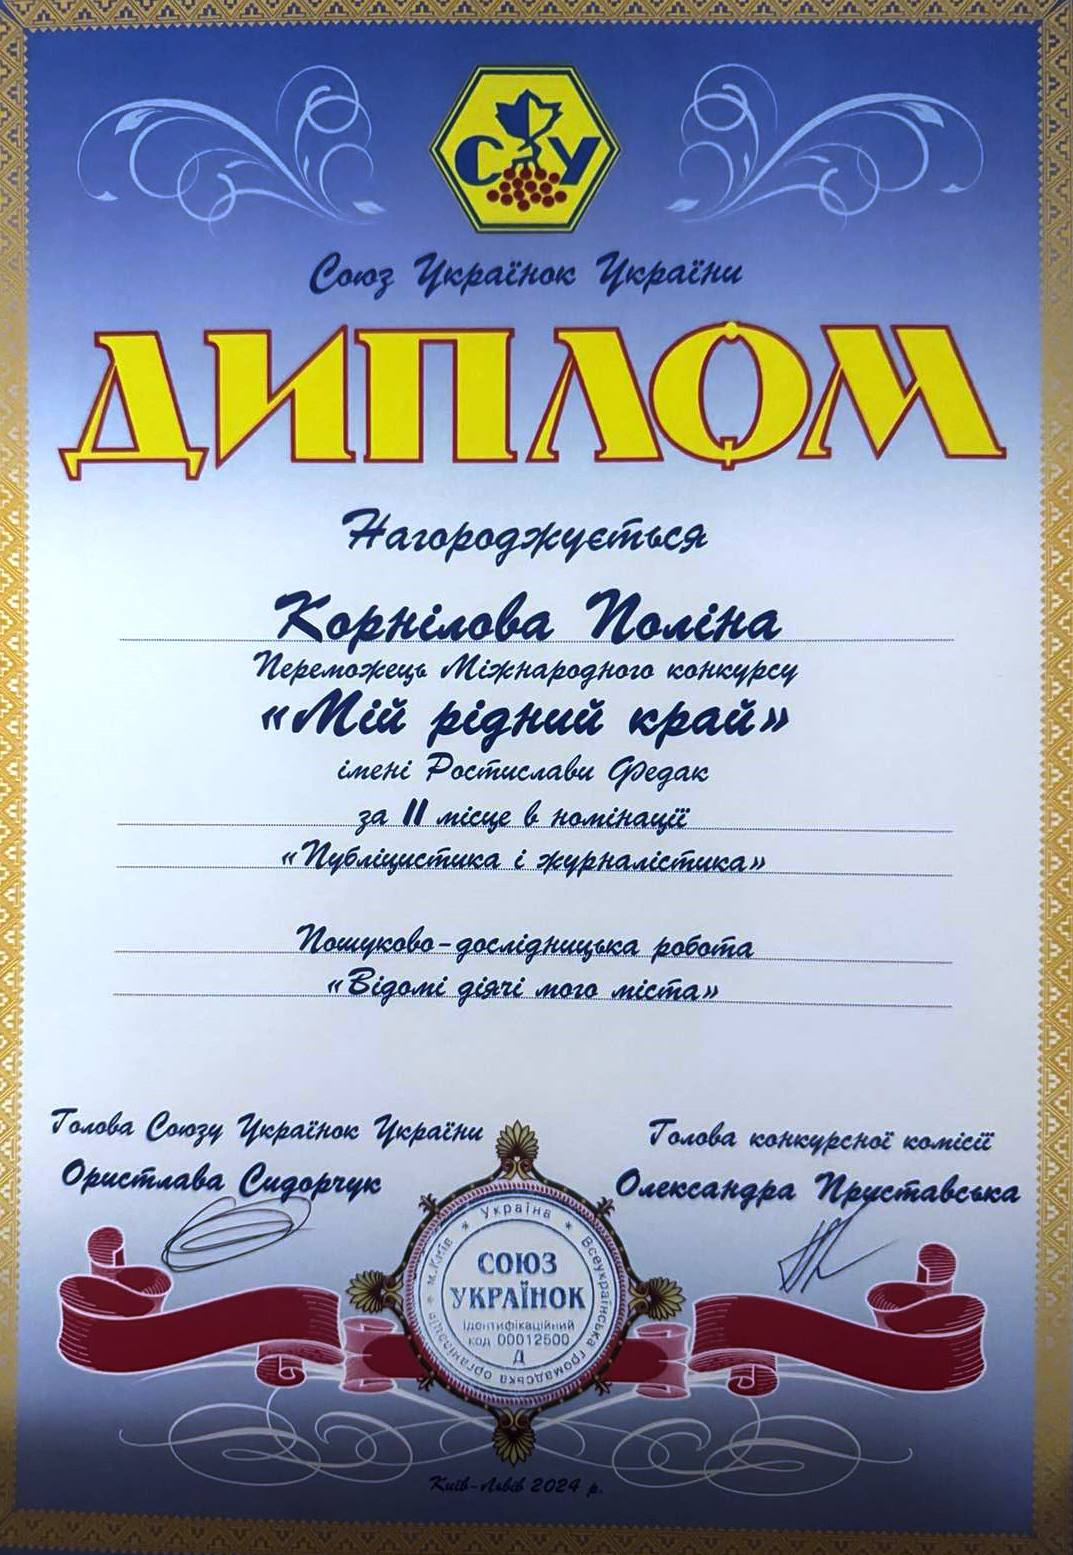 СУ
Союз Українок України
ДИПЛОМ
Нагороджується
Корнілова Поліна
Переможець Міжнародного конкурсу
«Мій рідний край»
імені Ростислави Федак
за II місце в номінації
«Публіцистика і журналістика»
Пошуково-дослідницька робота
«Відомі діячі мого міста»
Голова Союзу Українок України
Ористлава Сидорчук
Голова конкурсної комісії
Олександра Пруставська
Україна * Всеукраїнська громадська організація * м.Київ *
СОЮЗ
УКРАЇНОК
Ідентифікаційний
код 00012500
Д
Київ-Львів 2024 р.